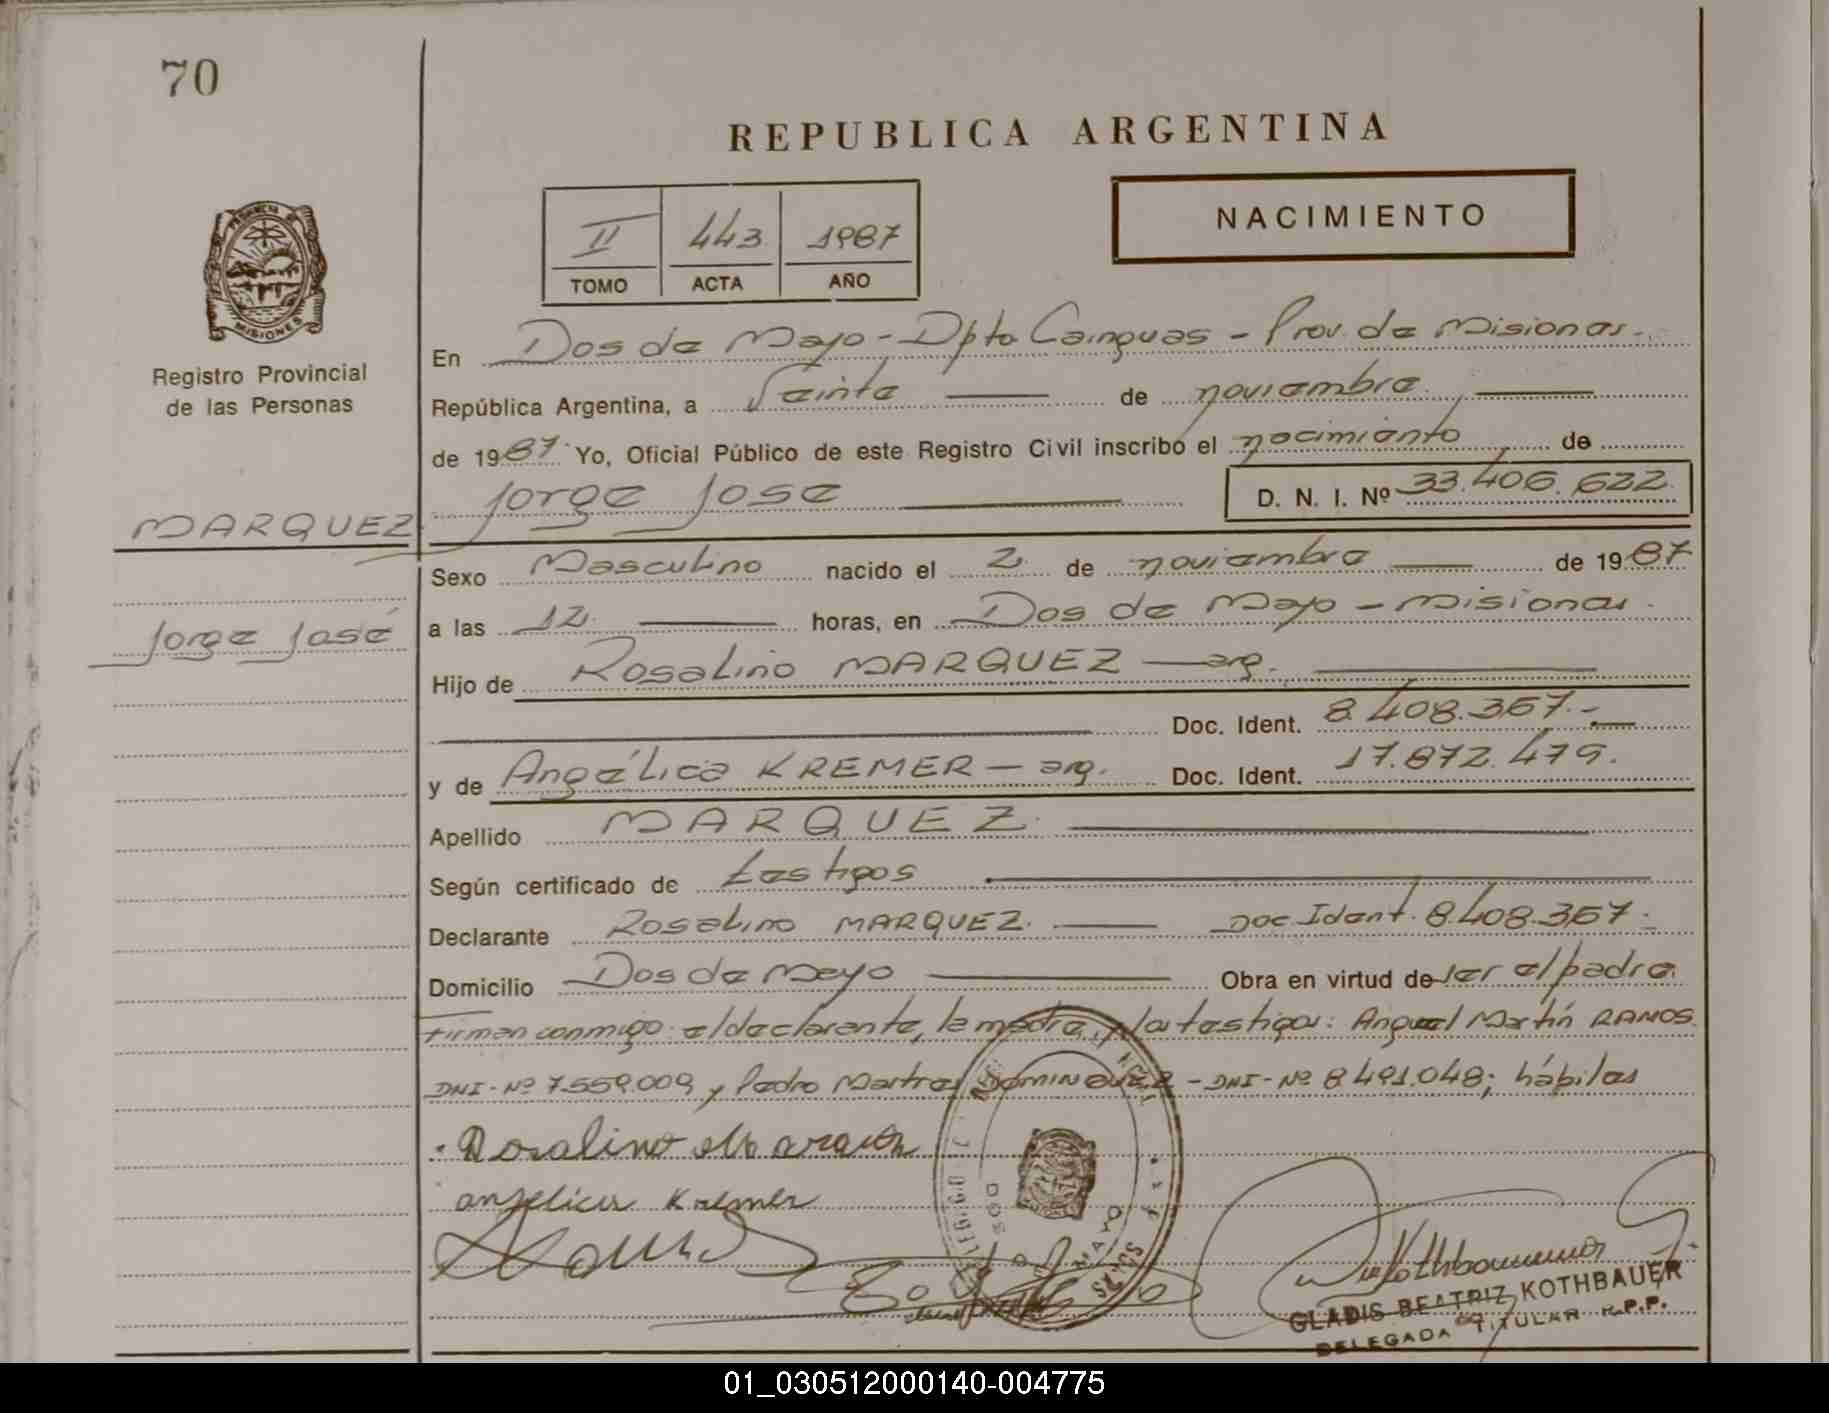 70
REPUBLICA ARGENTINA
II 443 1987
TOMO ACTA AÑO
NACIMIENTO
PROVINCIA DE
MISIONES
Registro Provincial
de las Personas
MARQUEZ
Jorge José
En Dos de Mayo - Dpto Cainguas - Prov. de Misiones.
República Argentina, a Veinte de noviembre
de 1987. Yo, Oficial Público de este Registro Civil inscribo el nacimiento de
Jorge José D. N. I. Nº 33.406.622.
Sexo Masculino nacido el 2 de noviembre de 1987
a las 12. horas, en Dos de Mayo - Misiones.
Hijo de Rosalino MARQUEZ - arg.
Doc. Ident. 8.408.367.-
y de Angélica KREMER - arg. Doc. Ident. 17.872.479.
Apellido MARQUEZ
Según certificado de testigos
Declarante Rosalino MARQUEZ. Doc Ident. 8.408.367.
Domicilio Dos de Mayo Obra en virtud de ser el padre.
Firman conmigo: el declarante, la madre, y los testigos: Angel Martín RAMOS
DNI-Nº 7.559.009 y Pedro DOMINGUEZ - DNI-Nº 8.491.048; hábiles
Rosalino Marques
angelica Kremer
GLADIS BEATRIZ KOTHBAUER
DELEGADA TITULAR R.P.P.
01_030512000140-004775